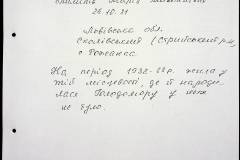 26.10.21
Львівська обл.
Сколівський (Стрийський р-н)
с.
На період 1932-33р. жила у
тій місцевості, де й народи
лася Голодомору у них
не було.